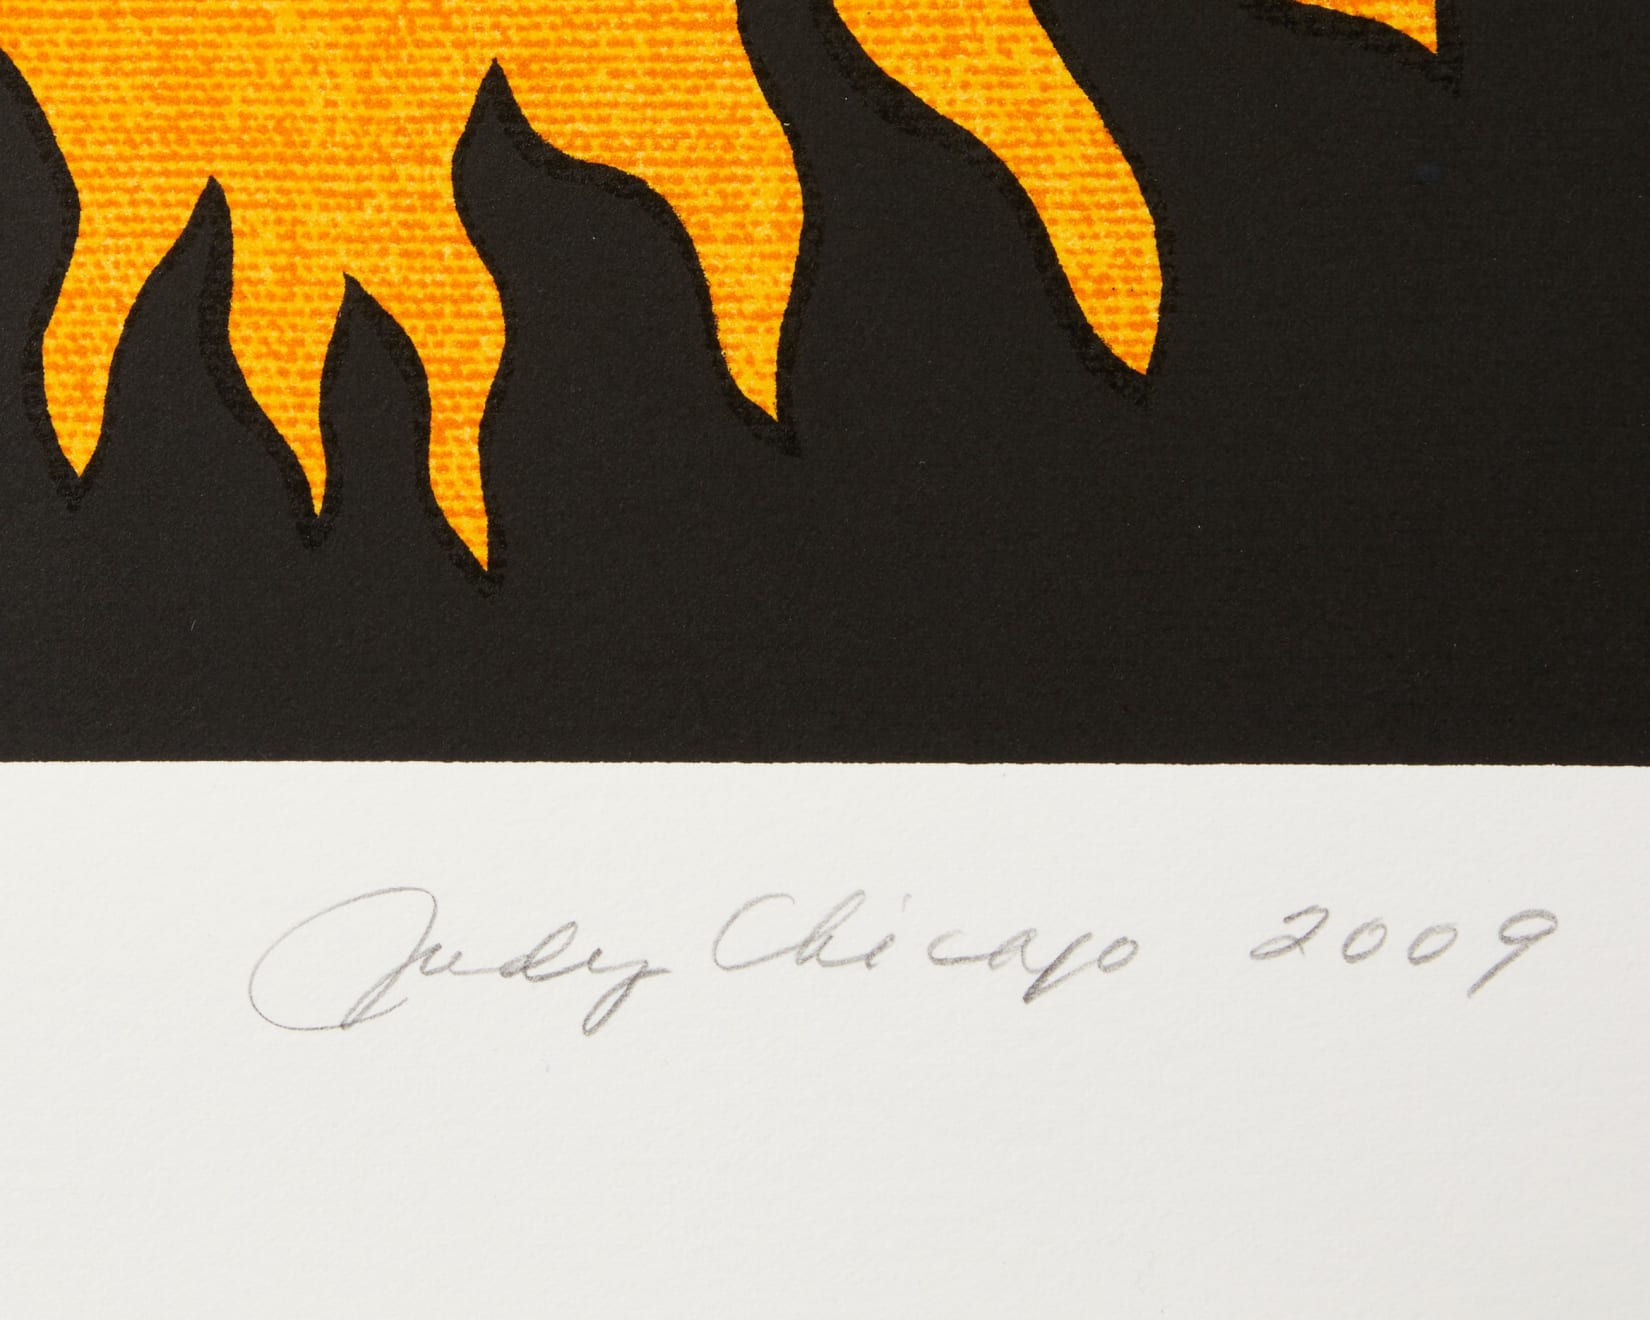 Judy Chicago 2009